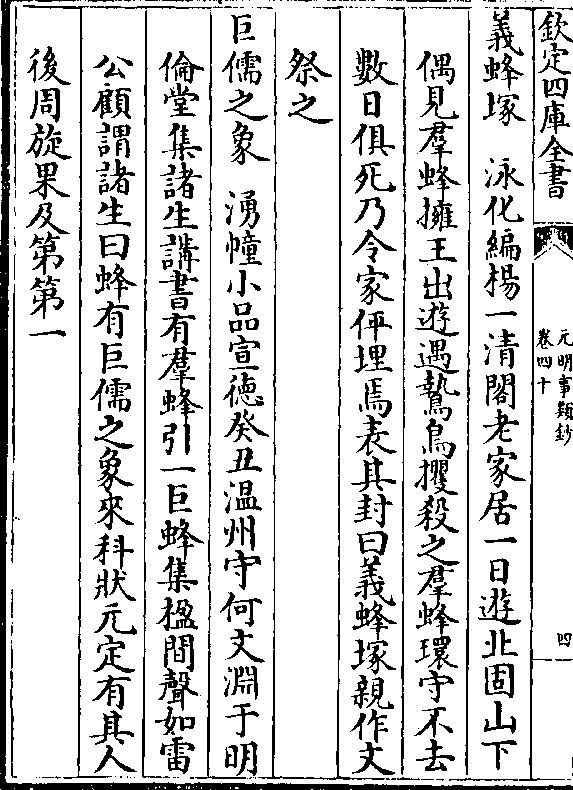 欽定四庫全書
元明事類鈔
卷四十
四
義蜂塚　泳化編楊一清閣老家居一日遊北固山下
偶見羣蜂擁王出遊遇鷙鳥攫殺之羣蜂環守不去
數日俱死乃令家伻埋焉表其封曰義蜂塚親作文
祭之
巨儒之象　湧幢小品宣徳癸丑温州守何文淵于明
倫堂集諸生講書有羣蜂引一巨蜂集楹間聲如雷
公顧謂諸生曰蜂有巨儒之象來科狀元定有其人
後周旋果及第第一